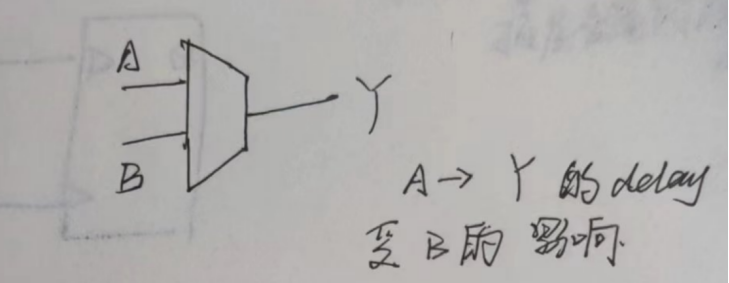 A
Y
B
A → Y 的 delay
受 B 的 影响.